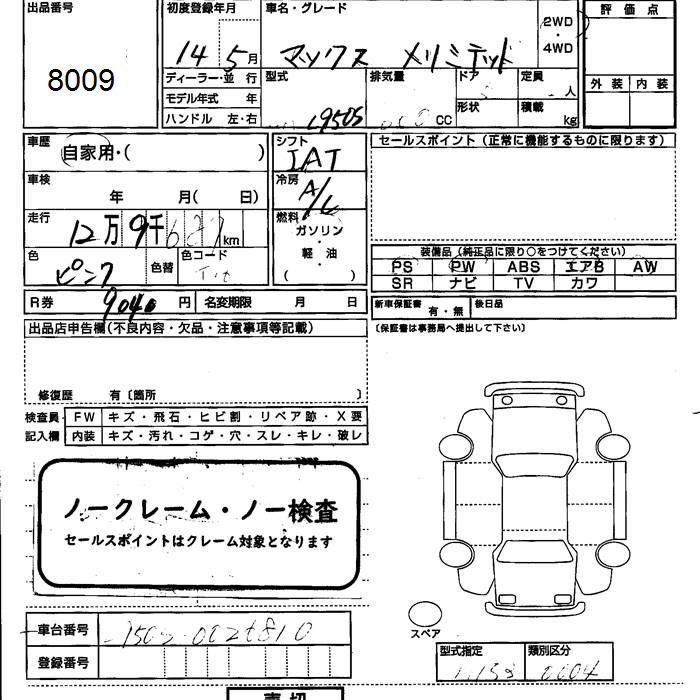 出品番号
8009
初度登録年月
14 5月
車名・グレード
マックス メリミテッド
2WD
・
4WD
評価点
外装 内装
ディーラー・並行
モデル年式 年
ハンドル 左・右
型式
L950S
排気量
CC
ドア
形状
定員
人
積載
kg
車歴
自家用・( )
車検
年 月( 日)
走行
12万9千 km
色
ピンク
色替
色コード
シフト
IAT
冷房
A/C
燃料
ガソリン
・
軽・油
( )
セールスポイント(正常に機能するものに限ります)
装備品(純正品に限り○をつけてください)
PS PW ABS エアB AW
SR ナビ TV カワ
R券 9040 円 名変期限 月 日
新車保証書 有・無 後日品
〔保証書は事務局へ提出して下さい〕
出品店申告欄(不良内容・欠品・注意事項等記載)
修復歴 有〔箇所 〕
検査員 FW キズ・飛石・ヒビ割・リペア跡・X要
記入欄 内装 キズ・汚れ・コゲ・穴・スレ・キレ・破レ
ノークレーム・ノー検査
セールスポイントはクレーム対象となります
車台番号
登録番号
スペア
型式指定 類別区分
0004
売切